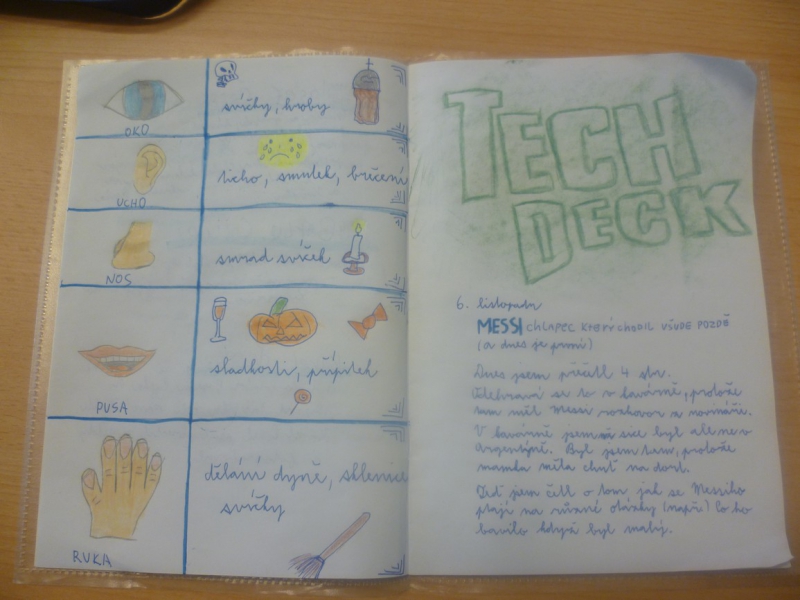 OKO
svíčky, hroby
UCHO
ticho, smutek, brečení
NOS
smrad svíček
PUSA
sladkosti, přípitek
RUKA
dělání dyně, sklenice
svíčky
TECH
DECK
6. listopadu
MESSI CHLAPEC KTERÝ CHODIL VŠUDE POZDĚ
(a dnes je první)
Dnes jsem přečetl 4 str.
Odehrává se to v kavárně, protože
tam měl Messi rozhovor s novináři.
V kavárně jsem sice byl ale ne v
Argentýně. Byl jsem tam, protože
mamka měla chuť na dort.
Teď jsem četl o tom, jak se Messiho
ptají na různé otázky (např.) Co ho
bavilo když byl malý.